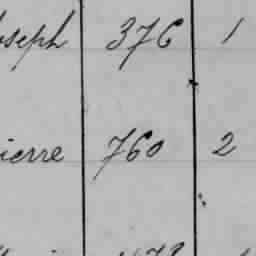 oseph 376 1
ierre 760 2